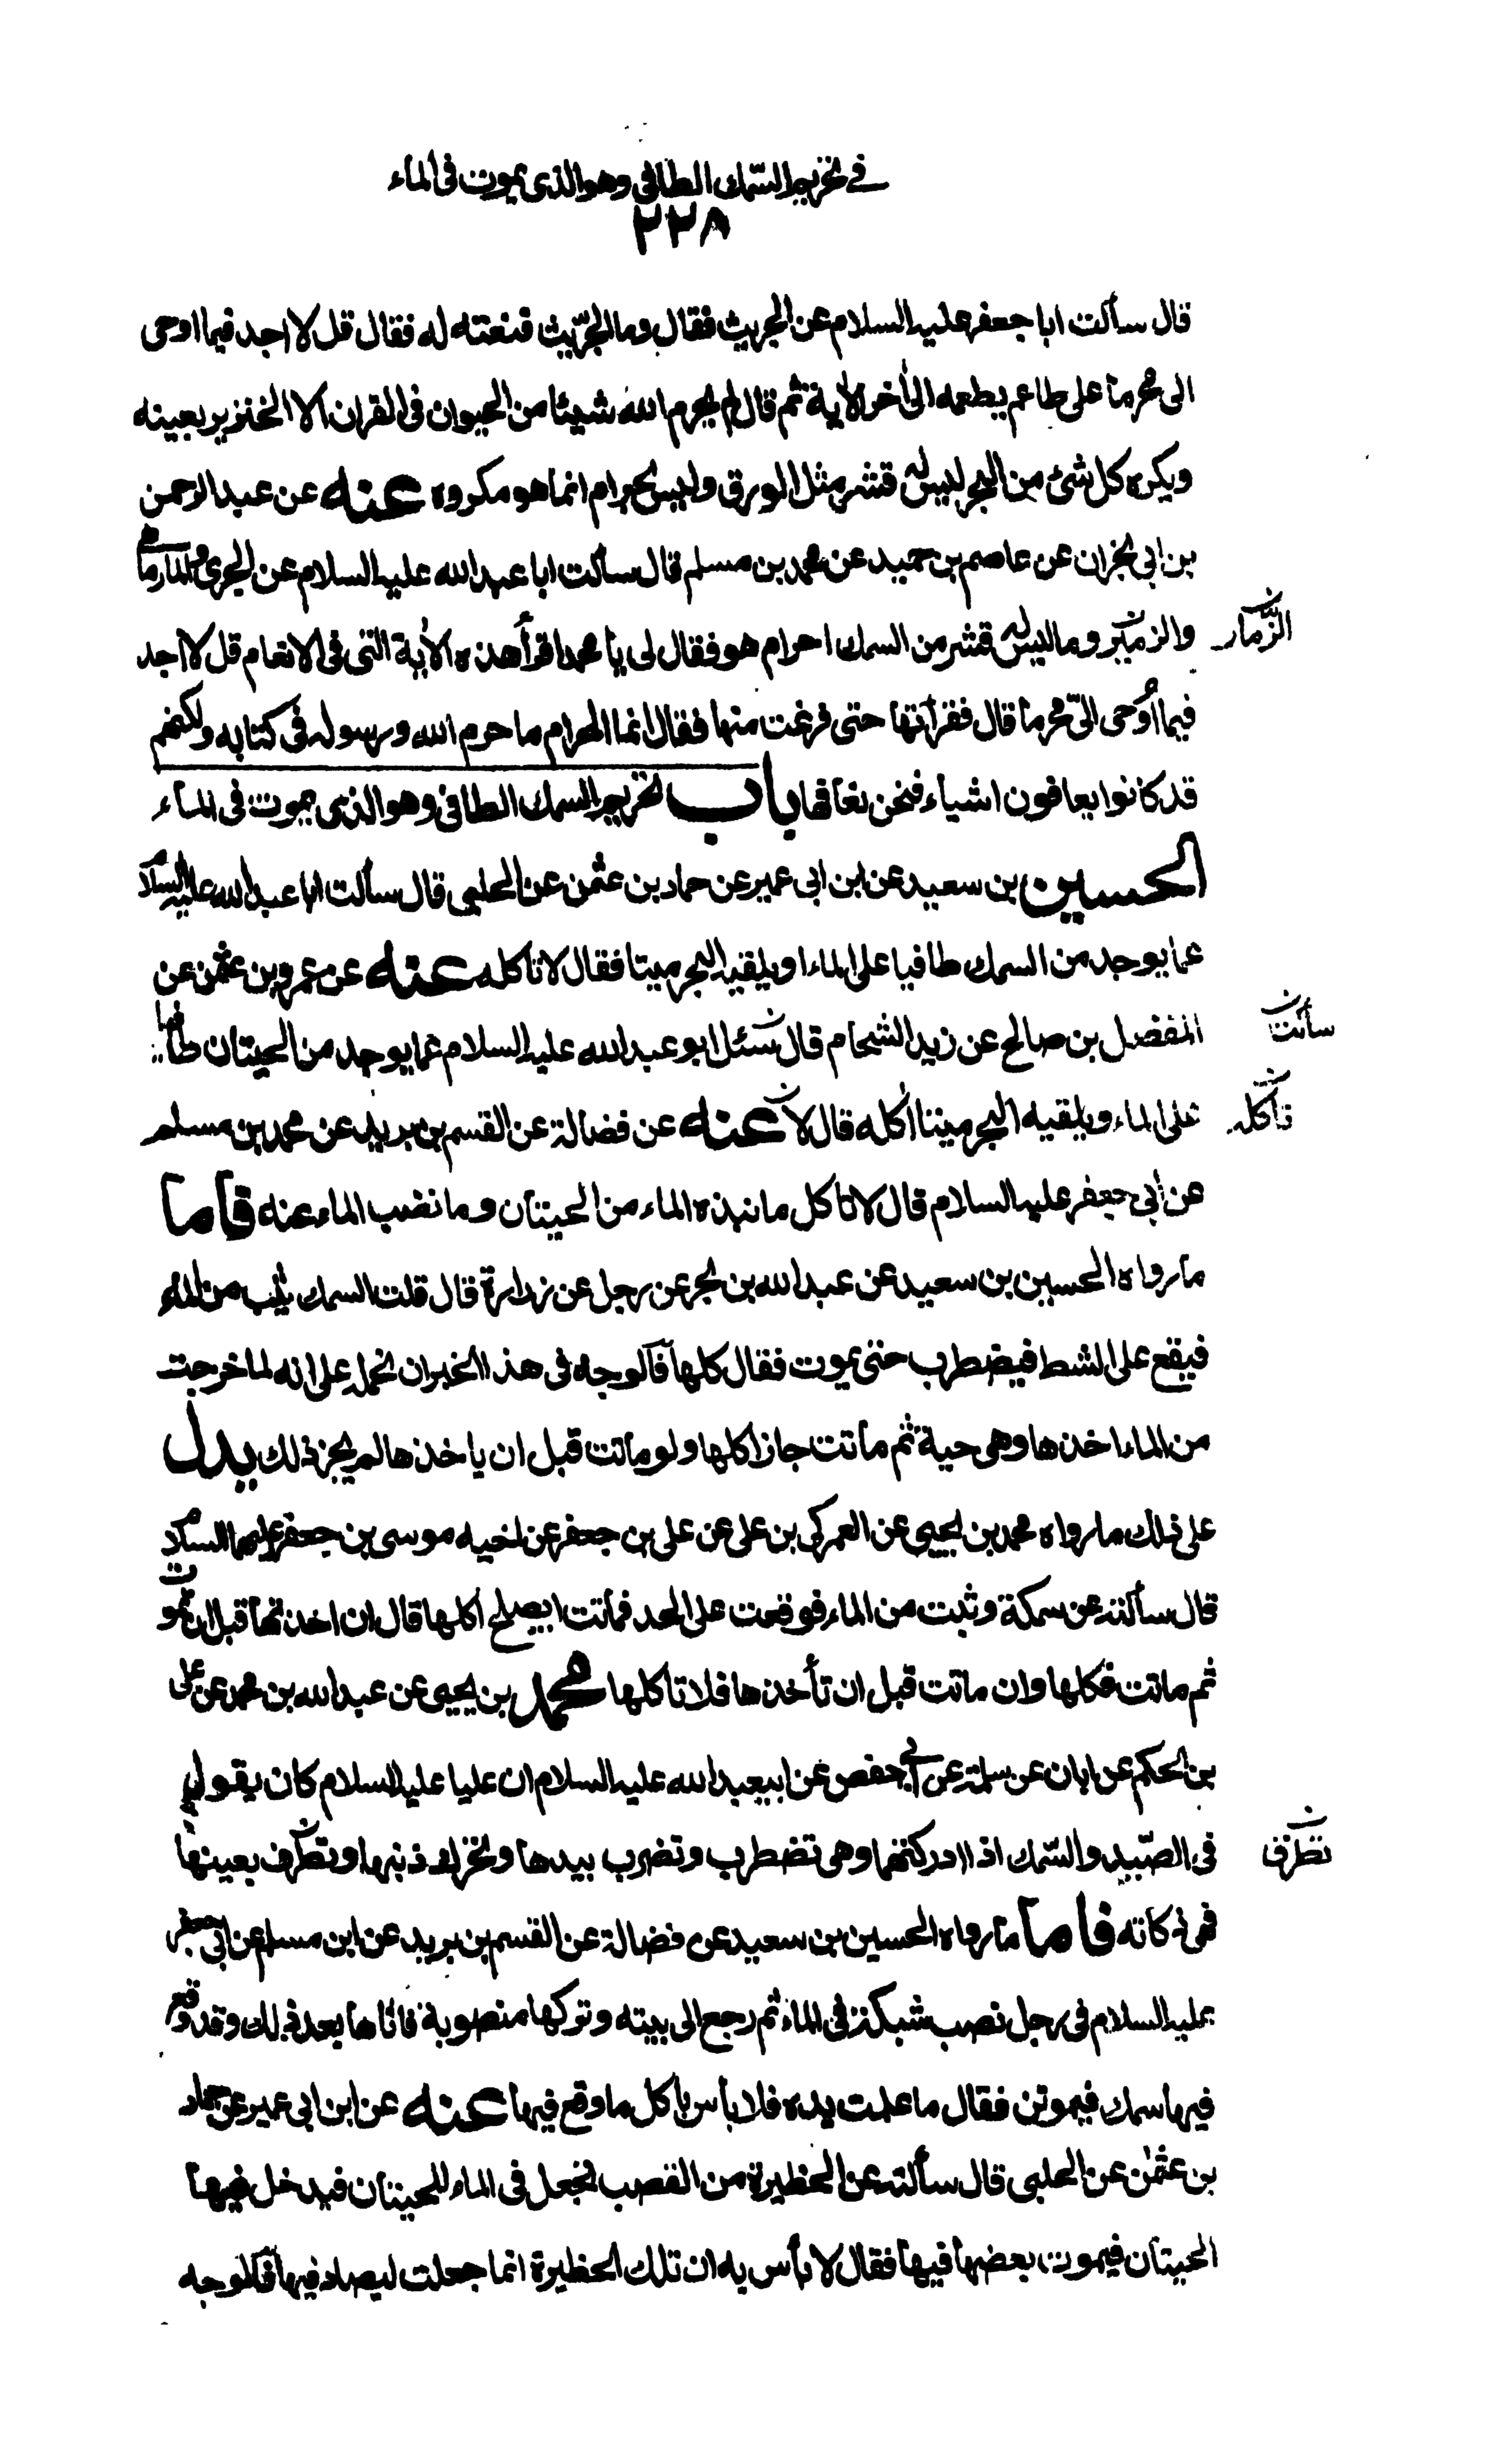 في تحريم السمك الطافي وهو الذى يموت فى الماء
٢٢٨
قال سألت ابا جعفر عليه السلام عن الجريث فقال وما الجريث فنعته له فقال قل لا اجد فيما اوحى
الى محرما على طاعم يطعمه الى اخر الاية ثم قال لم يحرم الله شيئا من الحيوان فى القران الا الخنزير بعينه
ويكره كل شئ من البحر ليس له قشر مثل الورق وليس بحرام انما هو مكروه عنه عن عبد الرحمن
بن ابى نجران عن عاصم بن حميد عن محمد بن مسلم قال سألت ابا عبد الله عليه السلام عن الجرى والمارماهى
والزمير وما ليس له قشر من السمك احرام هو فقال لى يا محمد اقرأ هذه الاية التى فى الانعام قل لا اجد
الزمار
فيما اوحى الىّ محرما قال فقرأتها حتى فرغت منها فقال انما الحرام ما حرم الله ورسوله فى كتابه ولكنهم
قد كانوا يعافون اشياء فنحن نعافها باب تحريم السمك الطافى وهو الذى يموت فى الماء
الحسين بن سعيد عن ابن ابى عمير عن حماد بن عثمن عن الحلبى قال سألت ابا عبد الله عليه السلام
عما يوجد من السمك طافيا على الماء او يلقيه البحر ميتا فقال لا تأكله عنه عن عمرو بن عثمن عن
المفضل بن صالح عن زيد الشحام قال سئل ابو عبد الله عليه السلام عما يوجد من الحيتان طافيا
سألت
على الماء ويلقيه البحر ميتا اكله قال لا عنه عن فضالة عن القسم بن بريد عن محمد بن مسلم
تأكله
عن ابى جعفر عليه السلام قال لا تاكل ما نبذه الماء من الحيتان وما نضب الماء عنه فاما
ما رواه الحسين بن سعيد عن عبد الله بن بحر عن رجل عن زرارة قال قلت السمك يثب من الماء
فيقع على الشط فيضطرب حتى يموت فقال كلها فالوجه فى هذا الخبر ان نحمله على انه لما خرجت
من الماء اخذها وهى حية ثم ماتت جاز اكلها ولو ماتت قبل ان ياخذها لم يجز ذلك يدل
على ذلك ما رواه محمد بن يحيى عن العمركى بن على عن على بن جعفر عن اخيه موسى بن جعفر عليهما السلام
قال سألته عن سمكة وثبت من الماء فوقعت على الجد فماتت ايصلح اكلها قال ان اخذتها قبل ان تموت
ثم ماتت فكلها وان ماتت قبل ان تأخذها فلا تاكلها محمد بن يحيى عن عبد الله بن محمد عن على
بن الحكم عن ابان عن سلمة عن ابى حفص عن ابيعبد الله عليه السلام ان عليا عليه السلام كان يقول
فى الصيد والسمك اذا ادركتها وهى تضطرب وتضرب بيدها وتحرك ذنبها وتطرف بعينها
تطرف
فهى ذكاته فاما ما رواه الحسين بن سعيد عن فضالة عن القسم بن بريد عن ابن مسلم عن ابى جعفر
عليه السلام فى رجل نصب شبكة فى الماء ثم رجع الى بيته وتركها منصوبة فاتاها بعد ذلك وقد وقع
فيها سمك فيموتن فقال ما عملت يده فلا بأس باكل ما وقع فيها عنه عن ابن ابى عمير عن حماد
بن عثمن عن الحلبى قال سألته عن الحظيرة من القصب تجعل فى الماء للحيتان فيدخل فيها
الحيتان فيموت بعضها فيها فقال لا بأس به ان تلك الحظيرة انما جعلت ليصاد فيها فالوجه